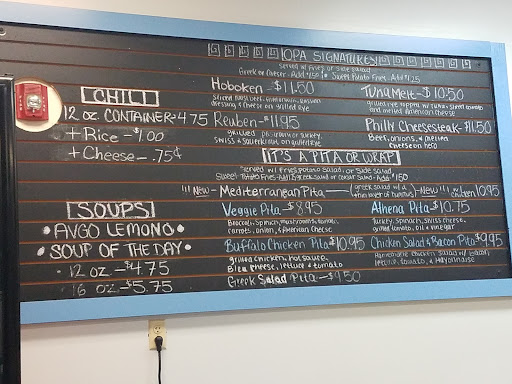 OPA SIGNATURE
served w/ Fries or side salad
Greek or Caesar - Add $1.50 Sweet Potato Fries - Add $1.25
CHILI
12 OZ. CONTAINER - 4.75
+ Rice - $1.00
+ Cheese - .75¢
Hoboken - $11.50
dressing & cheese on grilled rye
Reuben - $11.95
grilled pastrami or turkey,
swiss & sauerkraut on grilled rye
Tuna Melt - $10.50
grilled rye topped w/ tuna, sliced tomato
and melted American cheese
Philly Cheesesteak - $11.50
beef, onions, & melted
cheese on hero
IT'S A PITA OR WRAP
served w/ fries, potato salad, or side salad
Sweet Potato Fries - Add 1.25 greek salad or caesar salad - Add $1.50
!!! New - Mediterranean Pita - (greek salad w/ a thin layer of hummus) - New !!! w/ chicken 10.95
SOUPS
• AVGO LEMONO •
• SOUP OF THE DAY •
· 12 OZ - $4.75
· 16 OZ - $5.75
Veggie Pita - $8.95
Broccoli, spinach, mushrooms, tomato,
carrots, onion, & American Cheese
Buffalo Chicken Pita $10.95
grilled chicken, hot sauce,
Bleu cheese, lettuce & tomato
Greek Salad Pita - $9.50
Athena Pita - $10.75
Turkey, Spinach, Swiss cheese,
grilled tomato, oil & vinegar
Chicken Salad & Bacon Pita $9.95
Homemade chicken salad w/ bacon,
lettuce, tomato, & mayonnaise